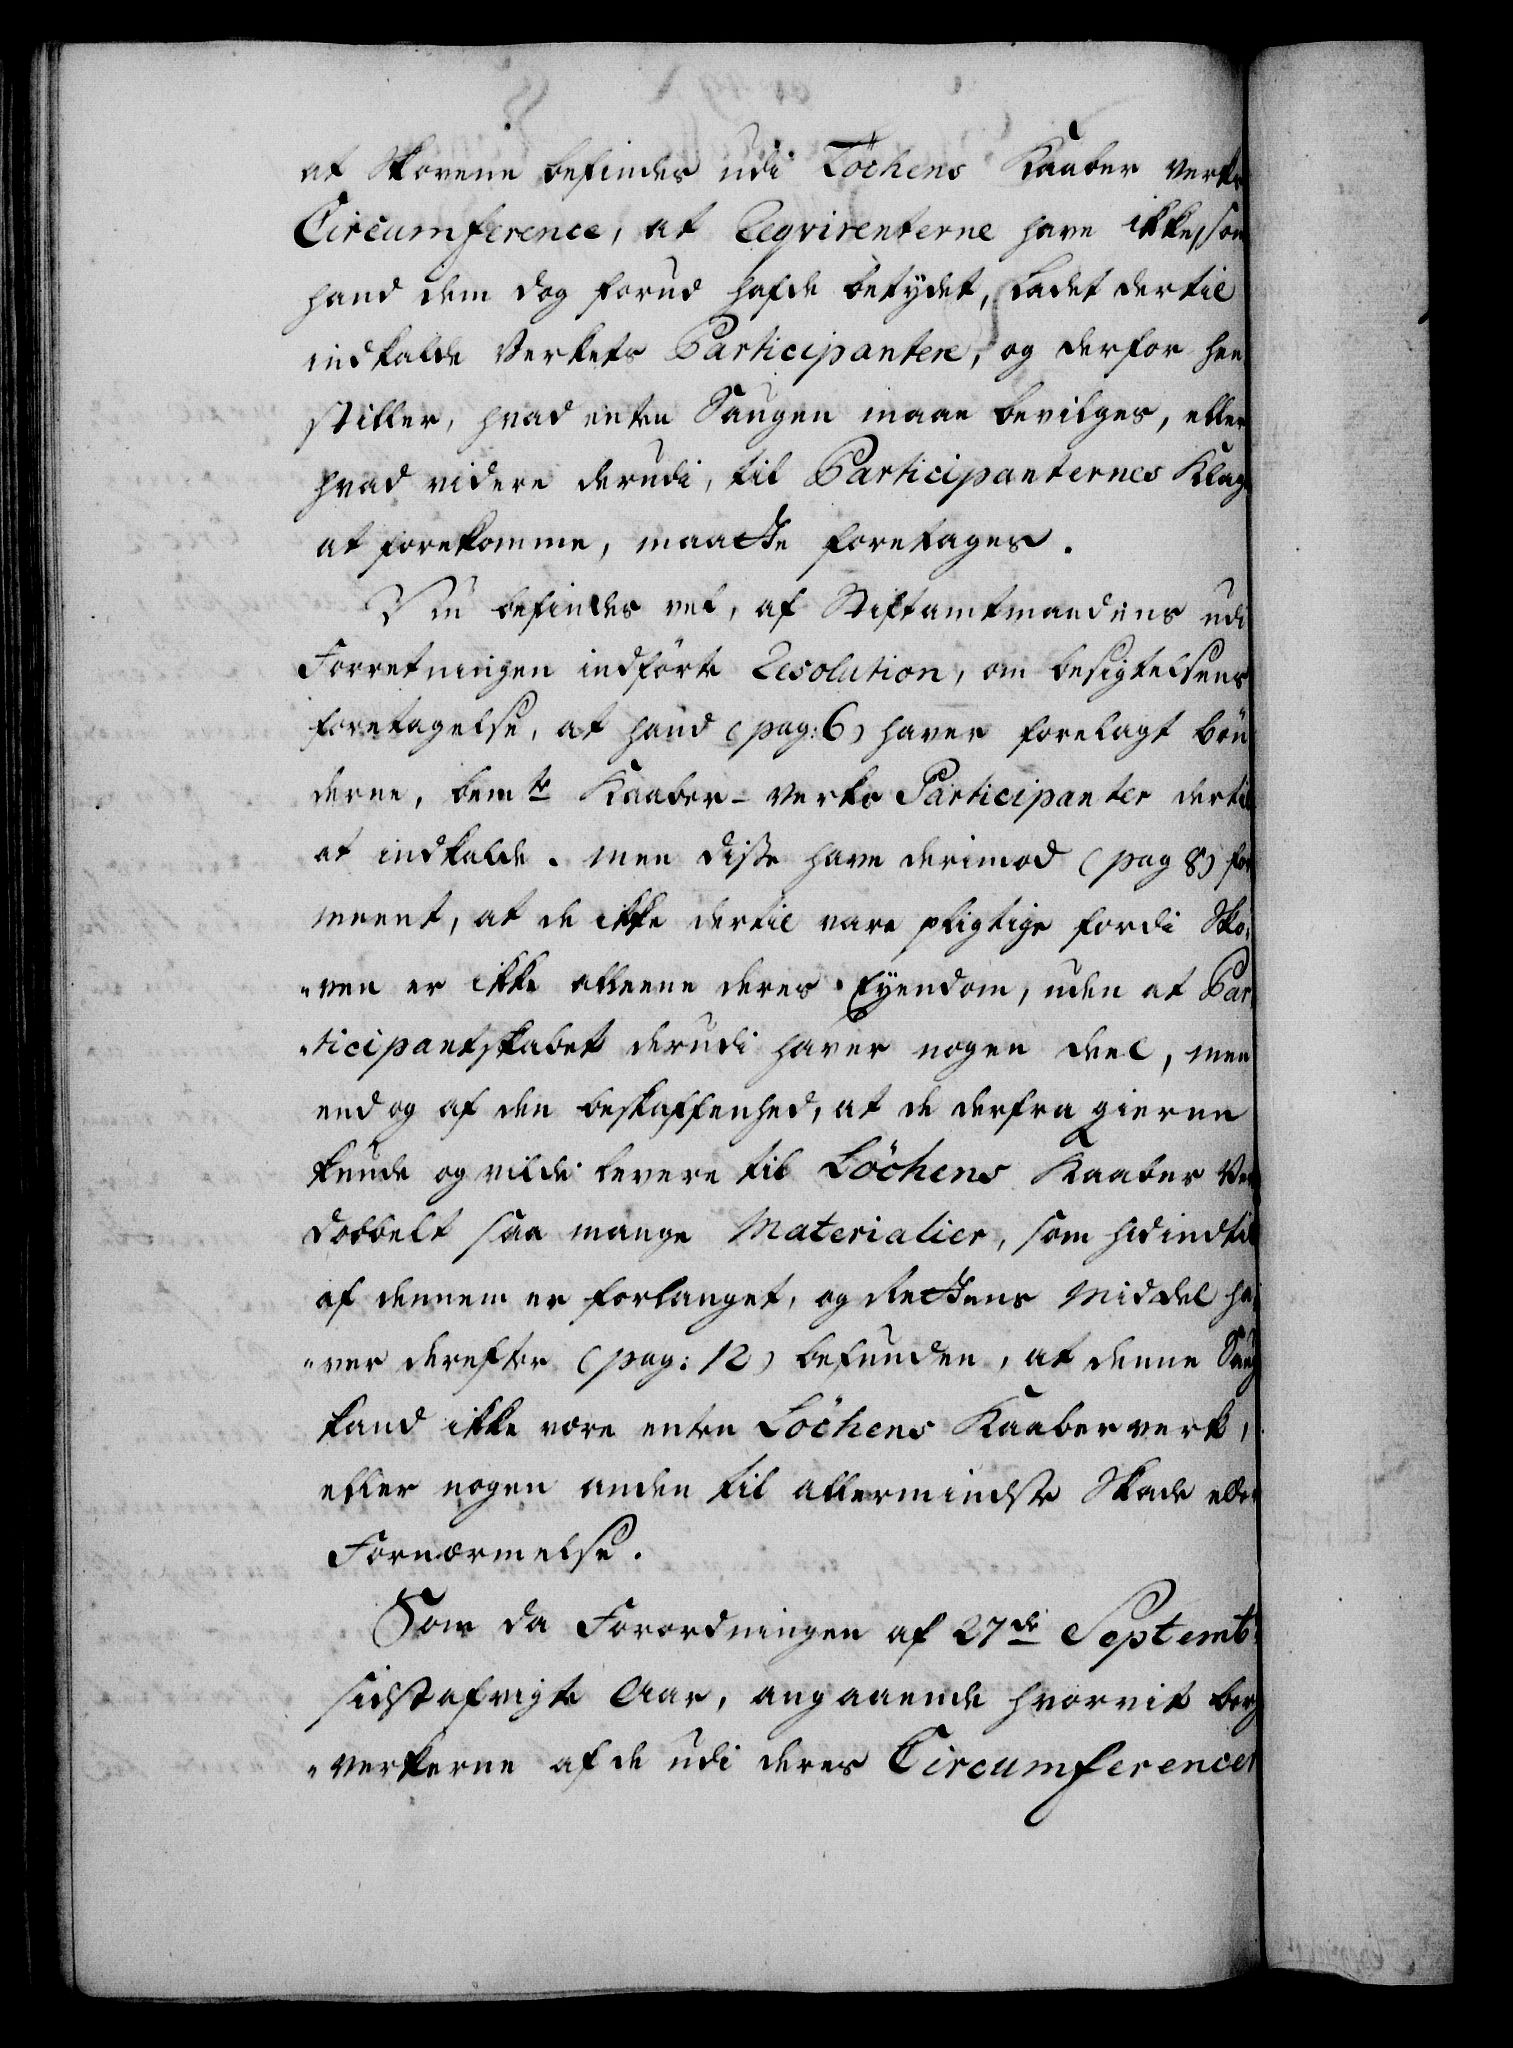 at Skovene befindes udi Löchens Kaaber Verks
Circumference, at Reqvirenterne have ikke, som
hand dem dog forud hafde betydet, ladet dertil
indkalde Verkets Participantere, og derfor hen
stiller, hvad enten Saugen maae bevilges, eller
hvad videre derudi, til Participanternes Klage
at forekomme, maatte foretages.
Nu befindes vel, af Stiftamtmandens udi
Forretningen indførte Resolution, om besigtelsens
foretagelse, at hand (pag: 6) haver forelagt bön
derne, bemte Kaaber-Verks Participanter dertil
at indkalde. men disse have derimod (pag 8) for
meent, at de ikke dertil vare pligtige fordi Sko,
"ven er ikke alleene deres Eyendom, uden at Par,
"ticipantskabet derudi haver nogen deel, men
end og af den beskaffenhed, at de derfra gierne
kunde og vilde levere til Löchens Kaaber Verk
dobbelt saa mange Materialier, som hidindtil
af dennem er forlanget, og Rettens Middel ha,
"ver derefter (pag: 12) befunden, at denne Saug
kand ikke være enten Löchens Kaaberverk,
eller nogen anden til allermindste Skade eller
Fornærmelse.
Som da Forordningen af 27de Septemb:
sidstafvigte Aar, angaaende hvorvit berg
"verkerne af de udi deres Circumferencer